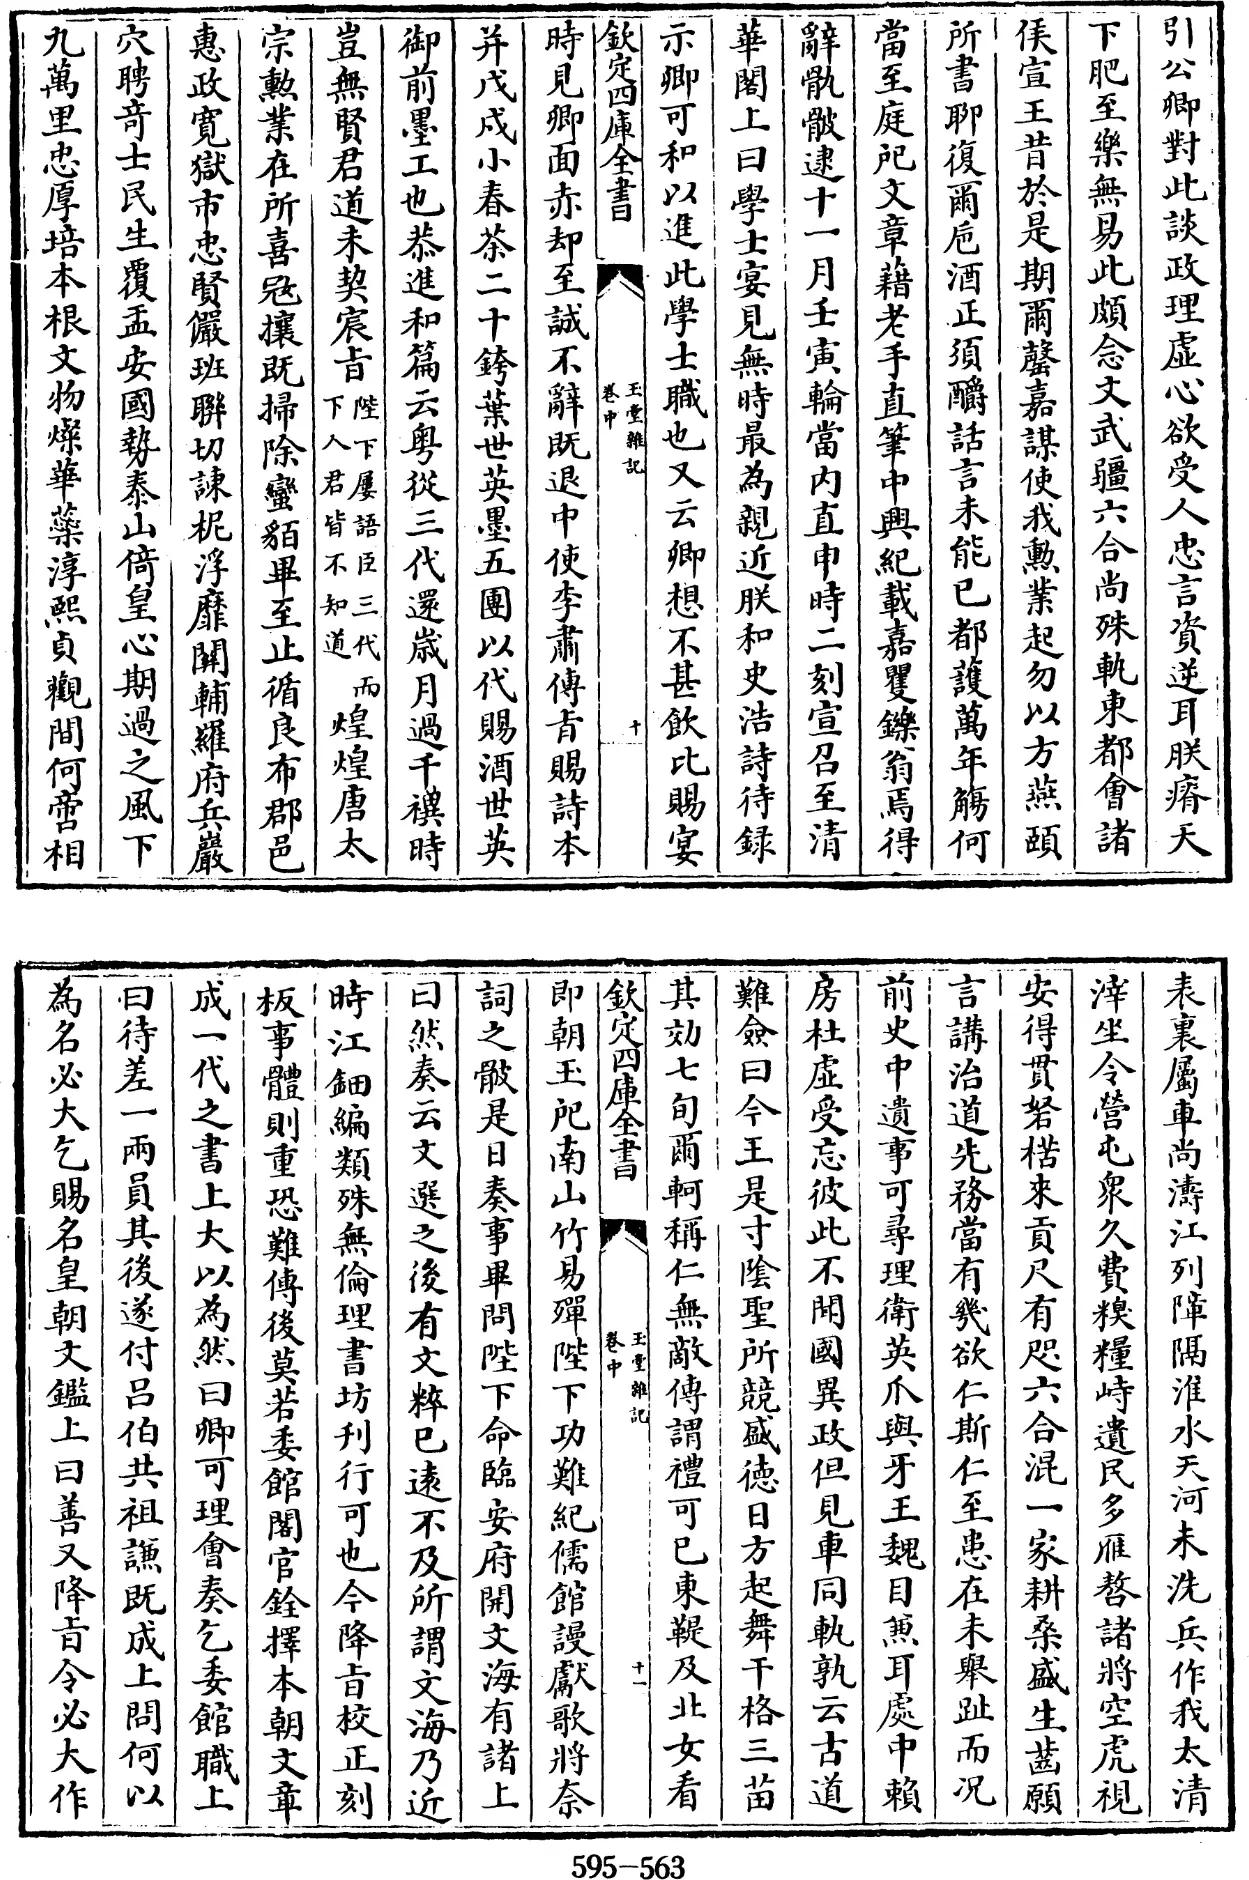 引公卿對此談政理虛心欲受人忠言資逆耳朕瘠天
下肥至樂無易此頗念文武疆六合尚殊軌東都會諸
侯宣王昔於是期爾罄嘉謀使我勲業起勿以方燕頤
所書聊復爾巵酒正須釂話言未能已都護萬年觴何
當至庭戺文章藉老手直筆中興紀載嘉矍鑠翁焉得
辭骫骳逮十一月壬寅輪當内直申時二刻宣召至清
華閣上曰學士宴見無時最為親近朕和史浩詩待録
示卿可和以進此學士職也又云卿想不甚飲比賜宴
欽定四庫全書
玉堂雜記
卷中
十
時見卿面赤却至誠不辭既退中使李肅傳㫖賜詩本
并戊戍小春茶二十銙葉世英墨五團以代賜酒世英
御前墨工也恭進和篇云粤從三代還歲月過千禩時
豈無賢君道未契宸㫖陛下屢語臣三代而下人君皆不知道煌煌唐太
宗勲業在所喜寇攘既掃除蠻貊畢至止循良布郡邑
惠政寛獄市忠賢儼班聨切諌柅浮靡關輔羅府兵巖
穴聘竒士民生覆盂安國勢泰山倚皇心期過之風下
九萬里忠厚培本根文物燦華蘂淳熙貞觀間何啻相
表裏屬車尚濤江列障隔淮水天河未洗兵作我太清
滓坐令營屯衆久費糗糧峙遺民多雁嗸諸將空虎視
安得貫砮楛來貢尺有咫六合混一家耕桑盛生齒願
言講治道先務當有幾欲仁斯仁至患在未舉趾而况
前史中遺事可尋理衛英爪與牙王魏目兼耳處中賴
房杜虛受忘彼此不聞國異政但見車同軌孰云古道
難僉曰今王是寸陰聖所競盛德日方起舞干格三苗
其効七旬爾軻稱仁無敵傳謂禮可已東鞮及北女看
欽定四庫全書
玉堂雜記
卷中
十一
即朝玉戺南山竹易殫陛下功難紀儒館謾獻歌將奈
詞之骳是日奏事畢問陛下命臨安府開文海有諸上
曰然奏云文選之後有文粹已逺不及所謂文海乃近
時江鈿編類殊無倫理書坊刋行可也今降㫖校正刻
板事體則重恐難傳後莫若委館閣官銓擇本朝文章
成一代之書上大以為然曰卿可理會奏乞委館職上
曰待差一兩員其後遂付吕伯共祖謙既成上問何以
為名必大乞賜名皇朝文鑑上曰善又降㫖令必大作
595-563